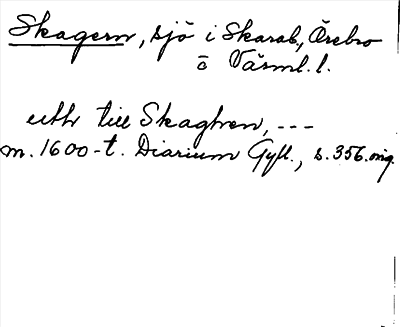 Skagern, sjö i Skarab., Örebro
o Värml. l.
uthr till Skaghren, ---
m. 1600-t. Diarium Gyll., s. 356. orig.